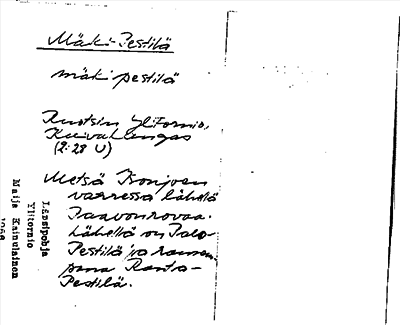 Mäki-Pestilä
mäki pestilä
Ruotsin Ylitornio,
Kuivakangas
(2:28 U)
Metsä Isonjoen
varressa lähellä
Paavonrovaa.
Lähellä on Palo-
Pestilä ja
Ranta-
Pestilä.
Länsipohja
Ylitornio
Maija Kainulainen
1968